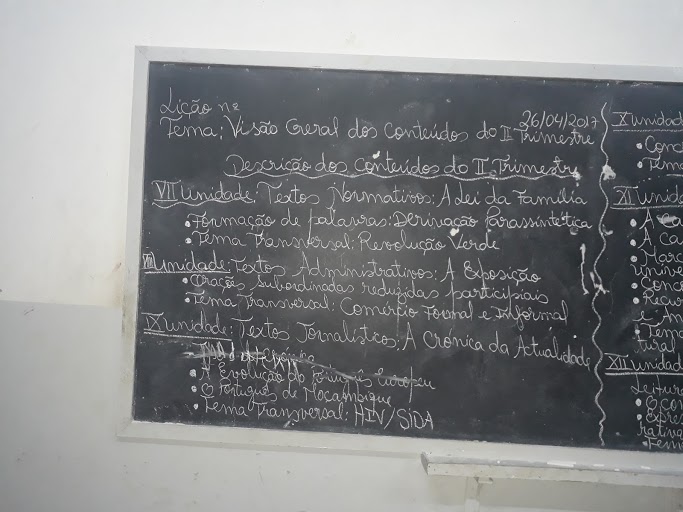 Lição nº
26/04/2017
Tema: Visão Geral dos Conteúdos do II Trimestre
Descrição dos Conteúdos do II Trimestre
VII Unidade: Textos Normativos: A Lei da Família
• Formação de palavras: Derivação Parassintética
• Tema Transversal: Revolução Verde
VIII Unidade: Textos Administrativos: A Exposição
• Orações Subordinadas reduzidas participiais
• Tema Transversal: Comércio Formal e Informal
IX Unidade: Textos Jornalísticos: A Crónica da Actualidade
• A Evolução do Português Europeu
• O Português de Moçambique
• Tema Transversal: HIV/SIDA
X Unidad
• Conc
• Tema
XI Unida
• A
• A ca
• Marc
univer
• Conc
• Recur
e An
• Tema
tural
XII Unidad
Leitura
• O Con
• Expres
rativa
• Tema